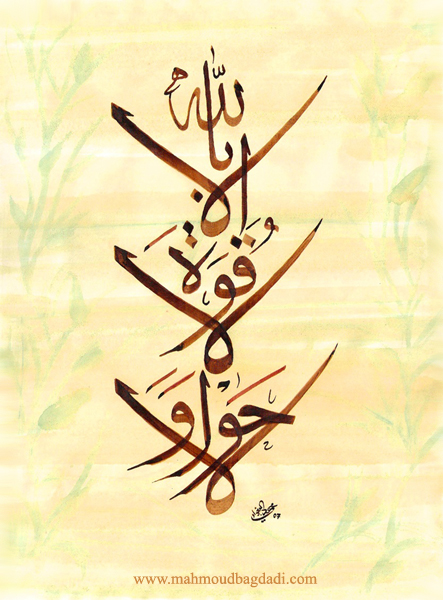 لا حول و
لا قُوَّة
إلا بالله
07
www.mahmoudbagdadi.com